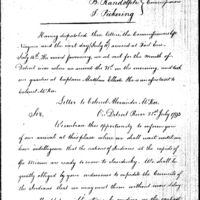 B. Randolph
T. Pickering } Commissioners
Having dispatched their letter, the Commissioners left
Niagara and the next day (July) arrived at Fort Erie.
July 14th The wind favouring, we set out for the mouth of
Detroit river where we arrived the 21st in the evening, and took
our quarters at Captain Matthew Elliott's He is an assistant to
Colonel McKee.
Letter to Colonel Alexander McKee
Sir, Detroit River 21st July 1793
We embrace this opportunity to inform you
of our arrival at this place where we shall wait until we
have intelligence that the nation of Indians at the rapids of
the Miami are ready to move to Sandusky. We shall be
greatly obliged by your endeavours to expedite the Councils of
the Indians that we may meet them without more delay